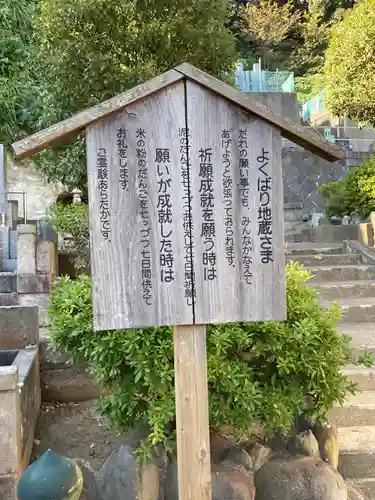 よくばり地蔵さま
だれの願い事でも、みんなかなえて
あげようと欲張っておられます。
祈願成就を願う時は
泥のだんごを七っづつ七日間祈願し
願いが成就した時は
米の粉のだんごを七っづつ七日間供えて
お礼をします。
ご霊験あらたかです。